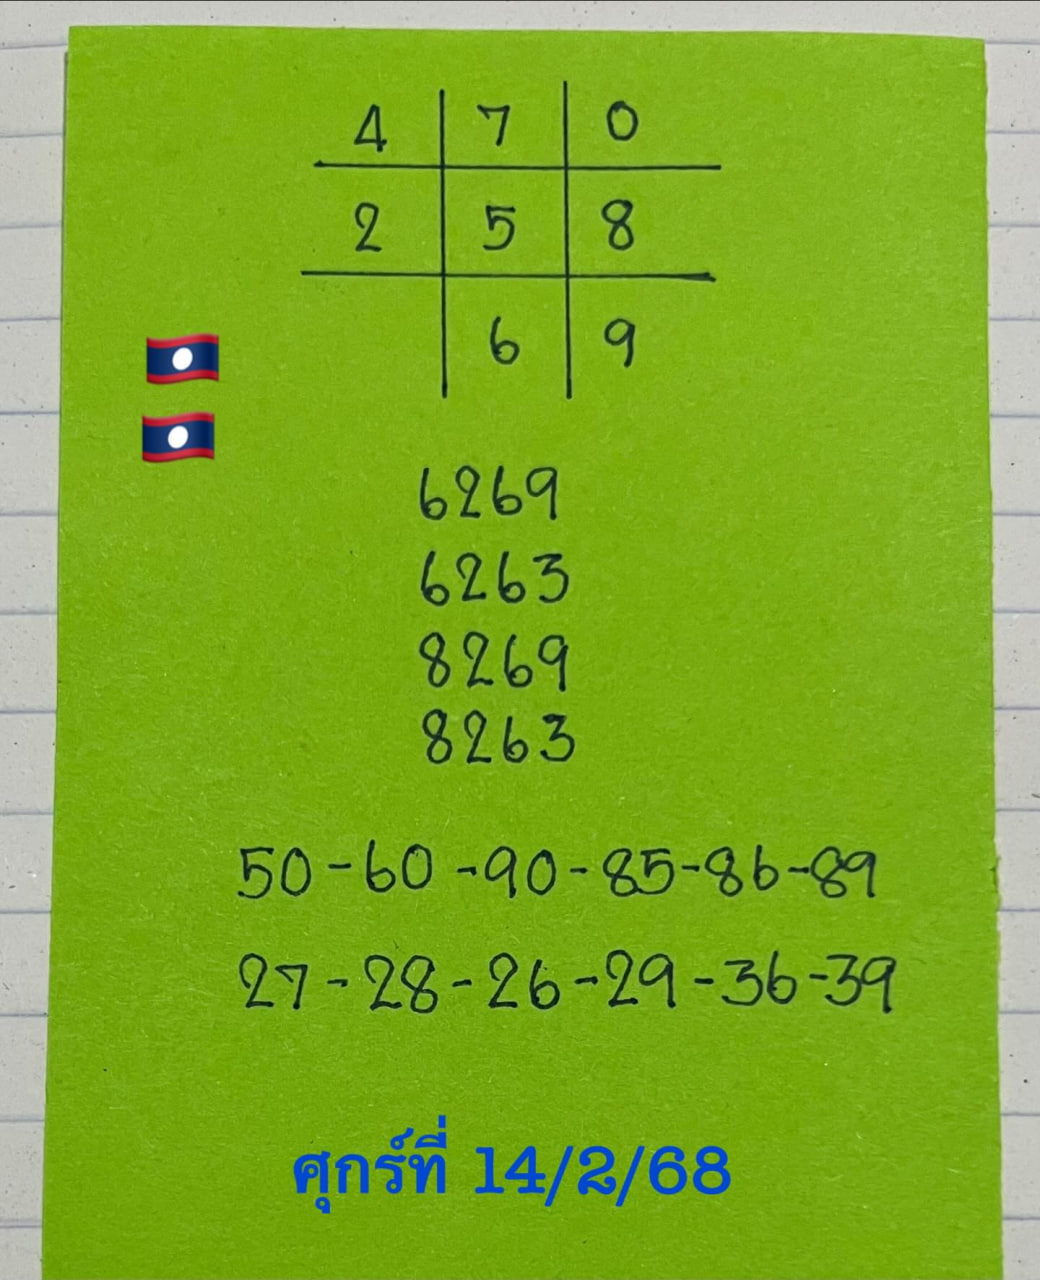 4 7 0
2 5 8
6 9
6269
6263
8269
8263
50-60-90-85-86-89
27-28-26-29-36-39
ศุกร์ที่ 14/2/68